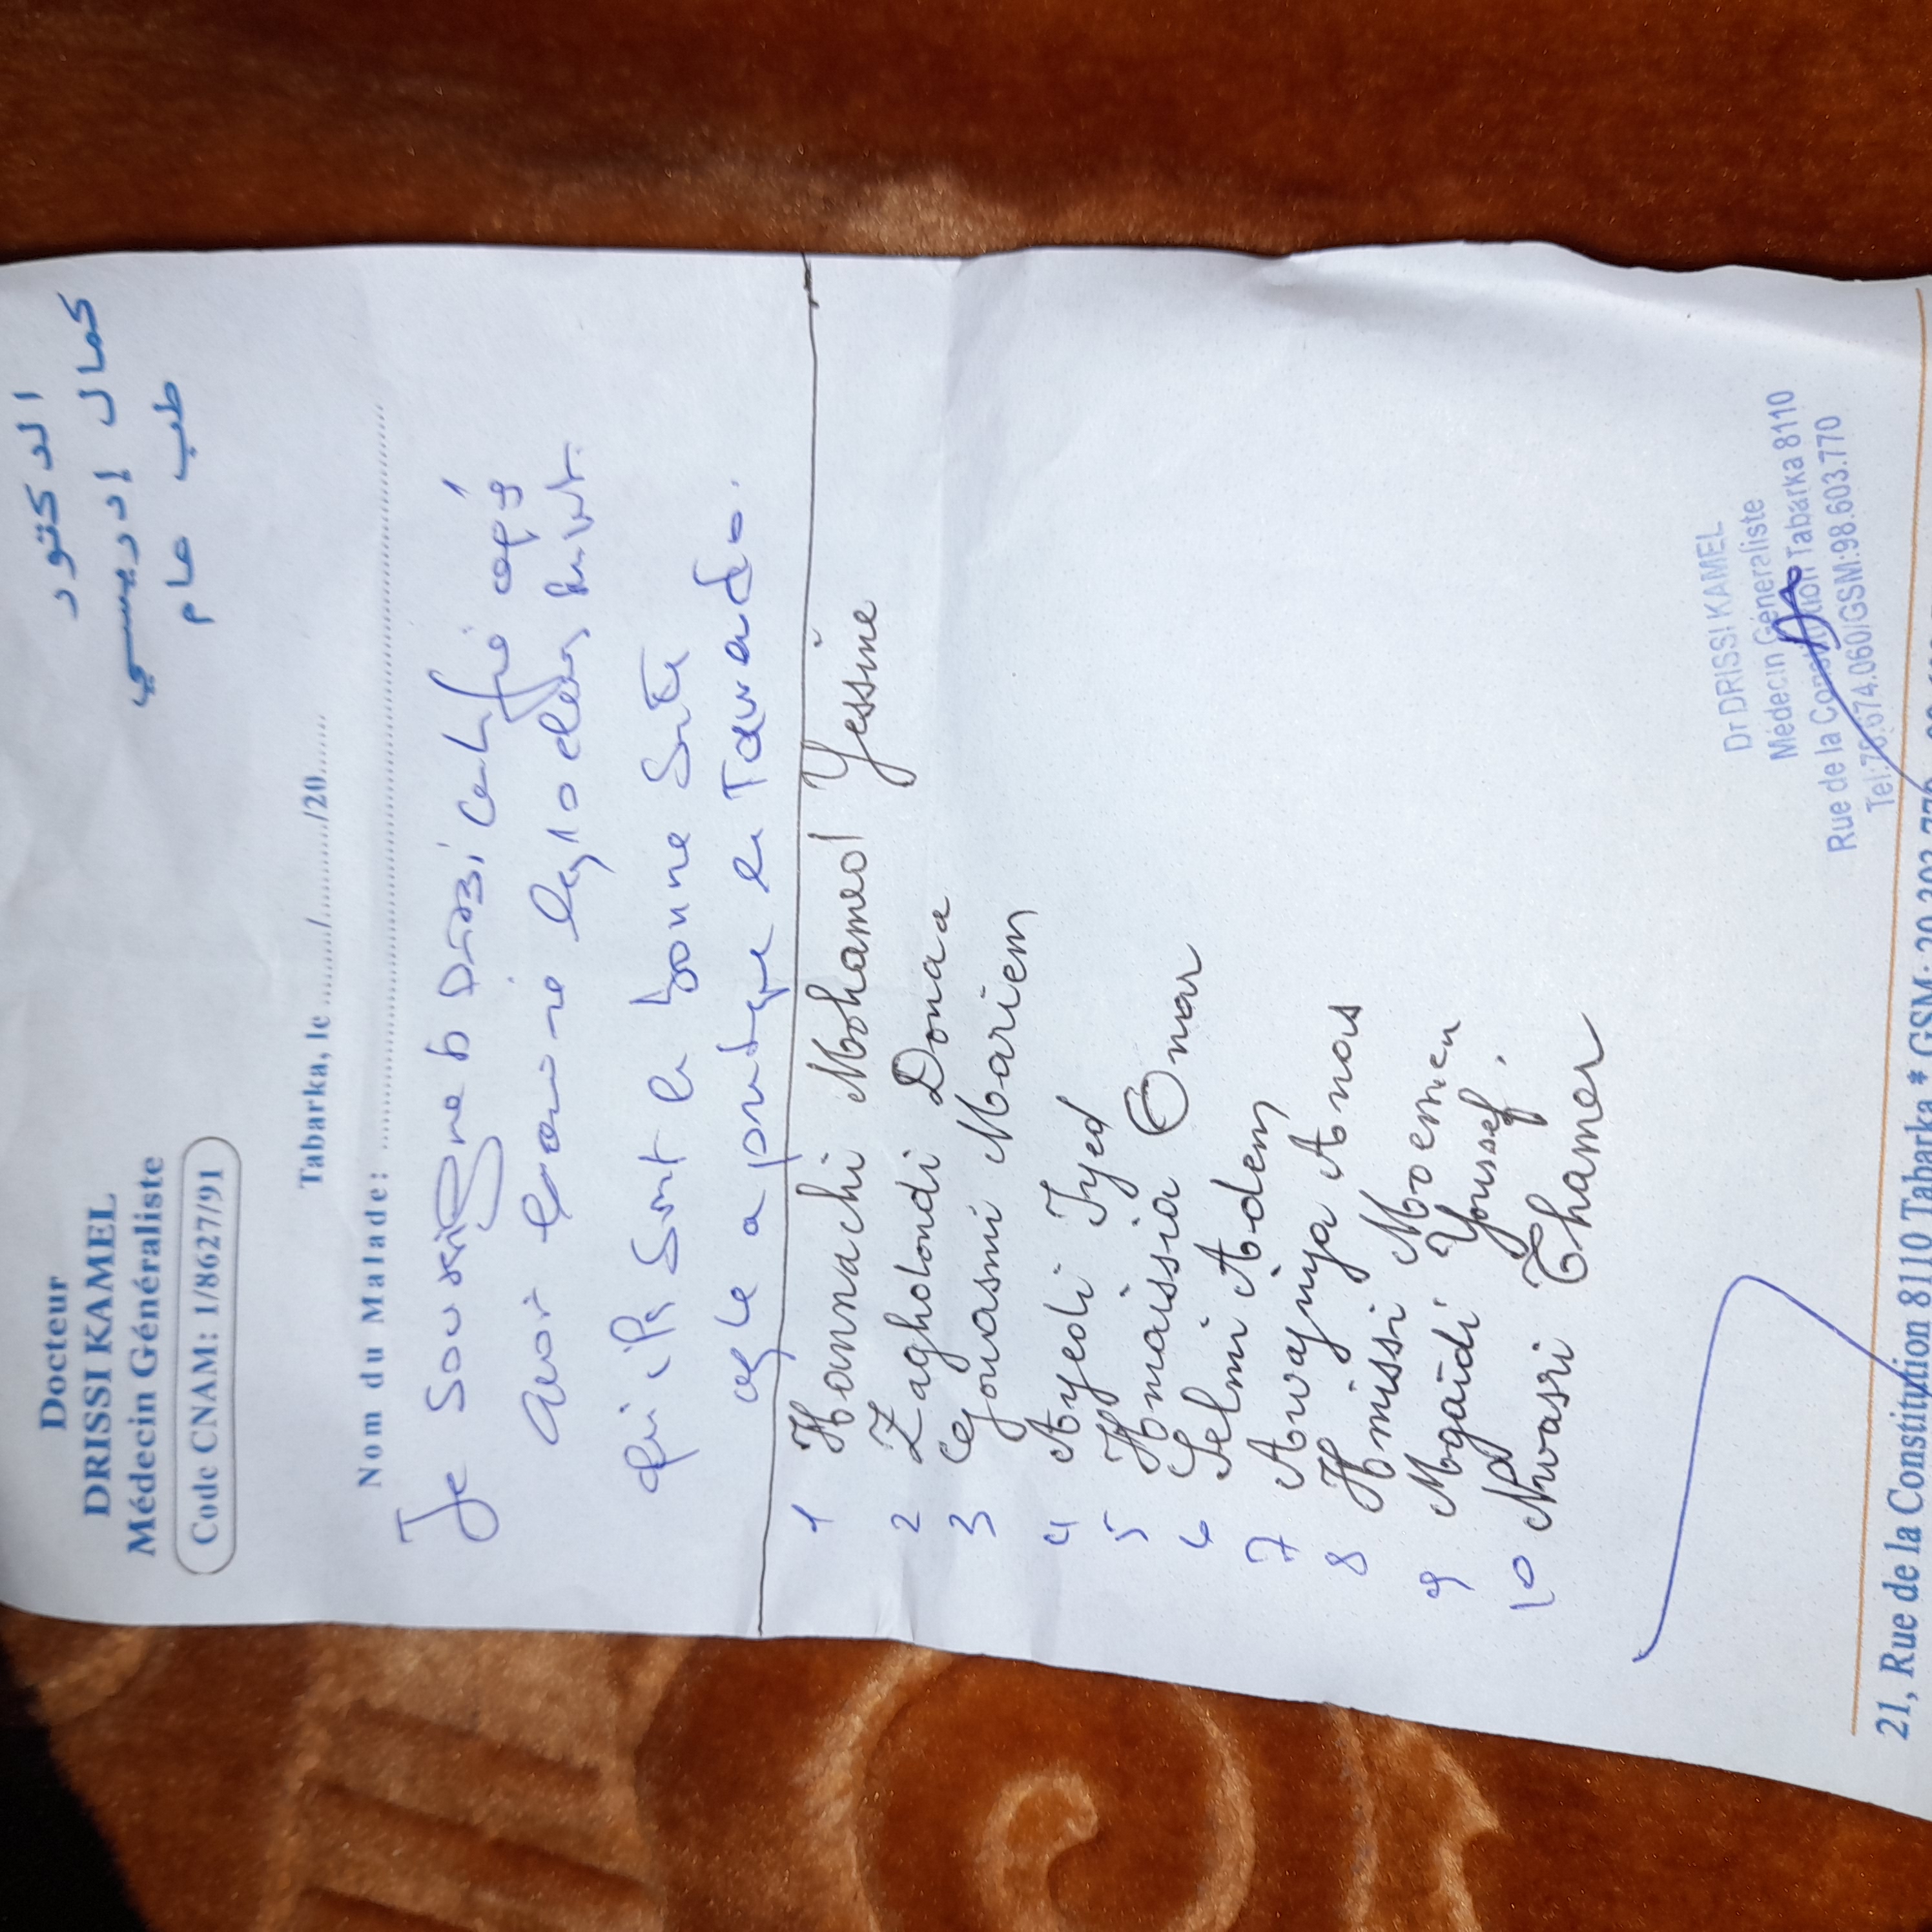 Docteur
DRISSI KAMEL
Médecin Généraliste
Code CNAM: 1/8627/91
الدكتور
كمال إدريسي
طب عام
Tabarka, le ............/............/20.......
Nom du Malade: ........................
Je soussigné Dr Drissi certifie après
avoir examiné les 10 élèves suivants
qu'ils sont en bonne santé
apte a pratiquer le Taekwondo.
1 Hannachi Mohamed Yessine
2 Zagholondi Donaa
3 Gouasmi Mariem
4 Ayedi Iyed
5 Hnaissia Omar
6 Selmi Adem
7 Awaynya Anas
8 Hmissi Moemen
9 Mgaidi Youssef.
10 Nwasri Thamer
Dr DRISSI KAMEL
Médecin Généraliste
Rue de la Constitution Tabarka 8110
Tel:78.674.060/GSM:98.603.770
21, Rue de la Constitution 8110 Tabarka * GSM: 20 302 770